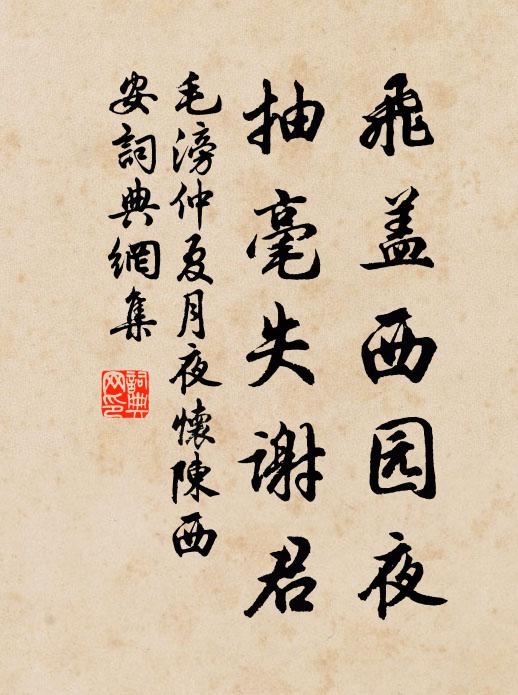 飛盖西园夜
抽毫失谢君
毛滂仲夏月夜懷陳西
安詞典網集
詞典
网印